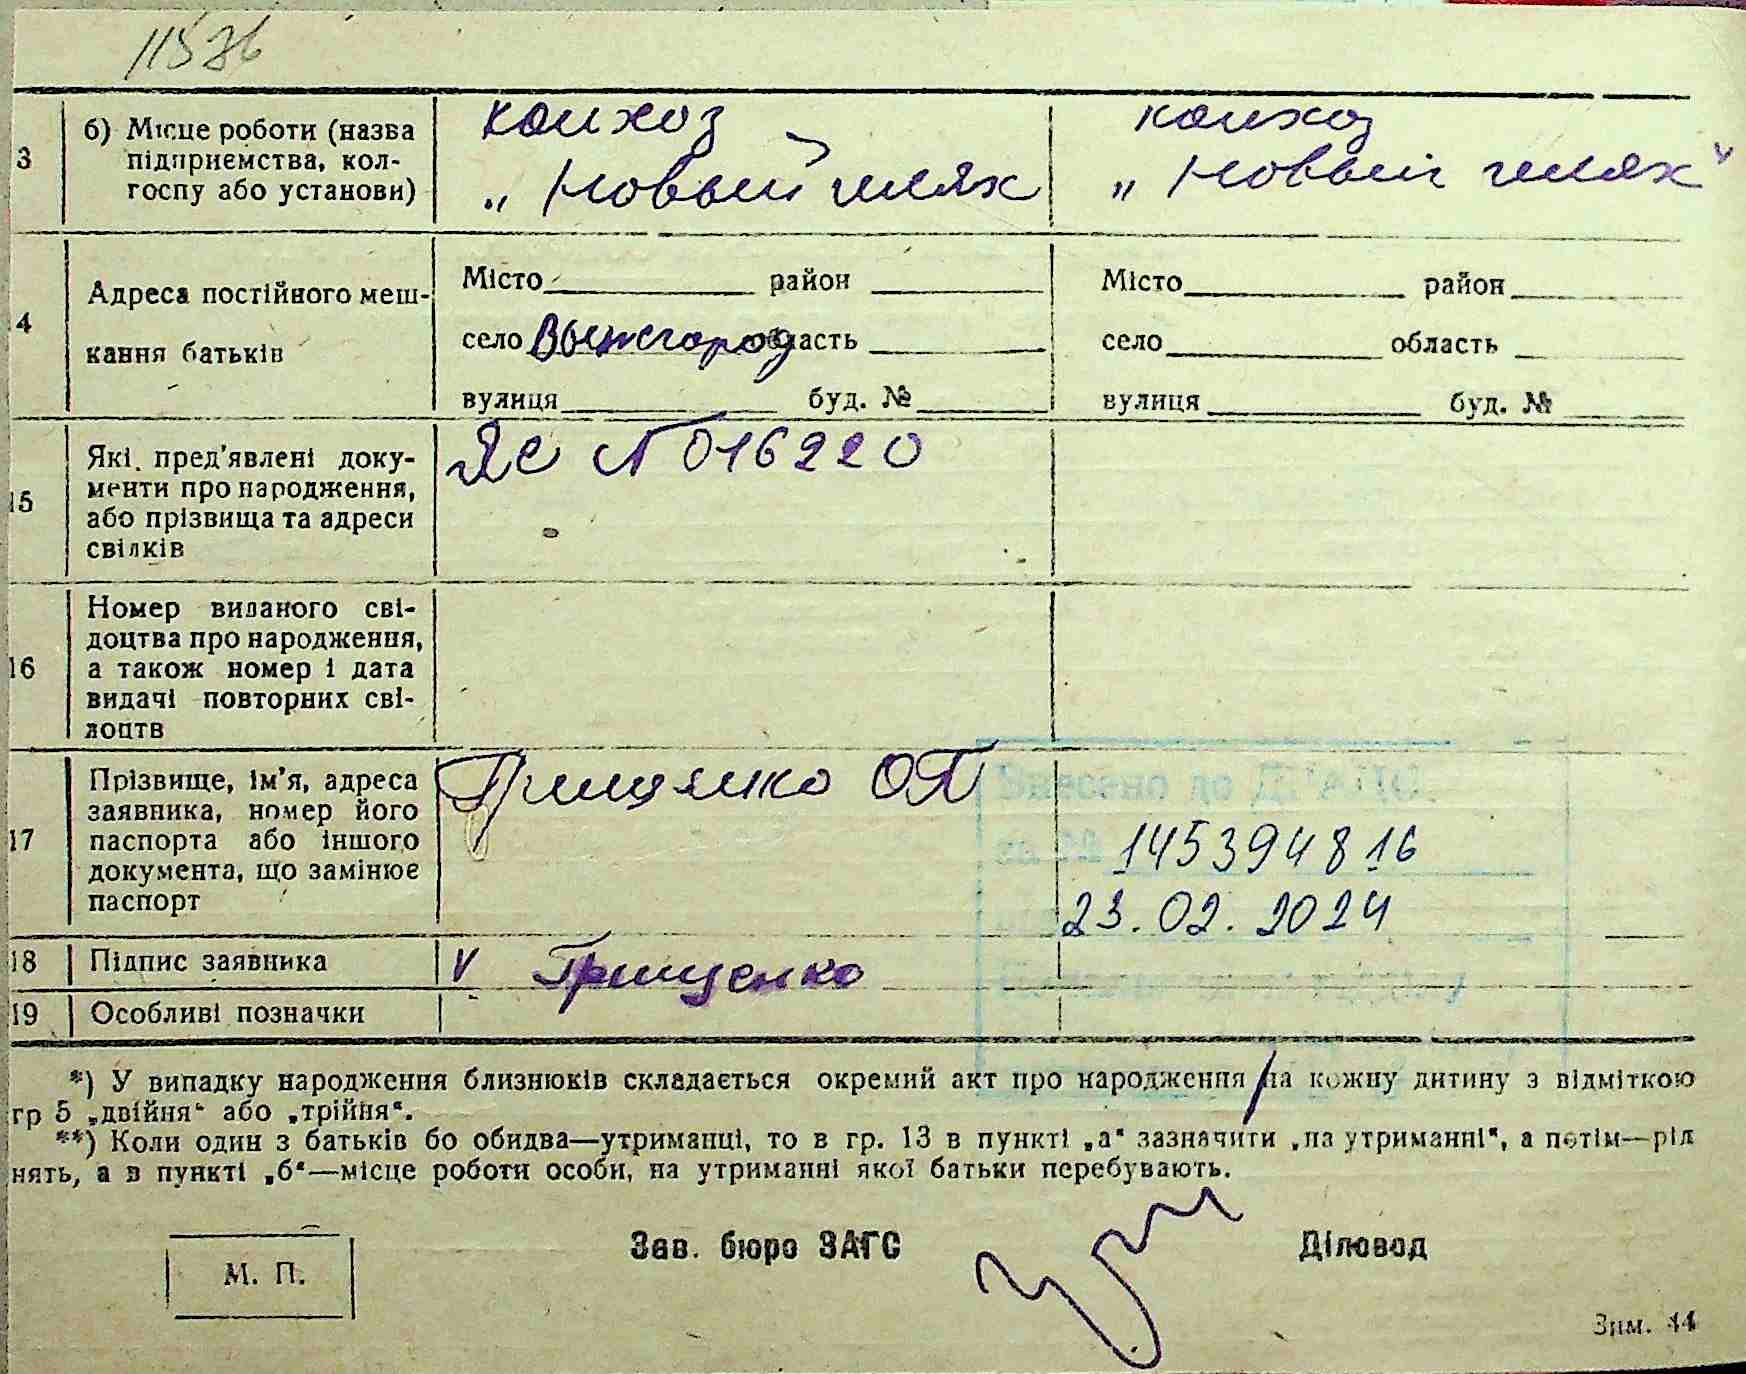 11576
3 б) Місце роботи (назва підприємства, колгоспу або установи)
колхоз „Новый шлях
колхоз „Новый шлях“
4 Адреса постійного мешкання батьків
Місто район
село Вышгород область
вулиця буд. №
Місто район
село область
вулиця буд. №
15 Які пред'явлені документи про народження, або прізвища та адреси свідків
ЯС № 016220
16 Номер виданого свідоцтва про народження, а також номер і дата видачі повторних свідоцтв
17 Прізвище, ім'я, адреса заявника, номер його паспорта або іншого документа, що замінює паспорт
Грищенко ОП
Внесено до ДРАЦС
за № 1453948 16
23.02.2024
18 Підпис заявника
V Грищенко
19 Особливі позначки
*) У випадку народження близнюків складається окремий акт про народження на кожну дитину з відміткою
гр 5 „двійня“ або „трійня“.
**) Коли один з батьків бо обидва—утриманці, то в гр. 13 в пункті „а“ зазначити „на утриманні“, а потім—рід
нять, а в пункті „б“—місце роботи особи, на утриманні якої батьки перебувають.
М. П.
Зав. бюро ЗАГС
Діловод
Зим. 44